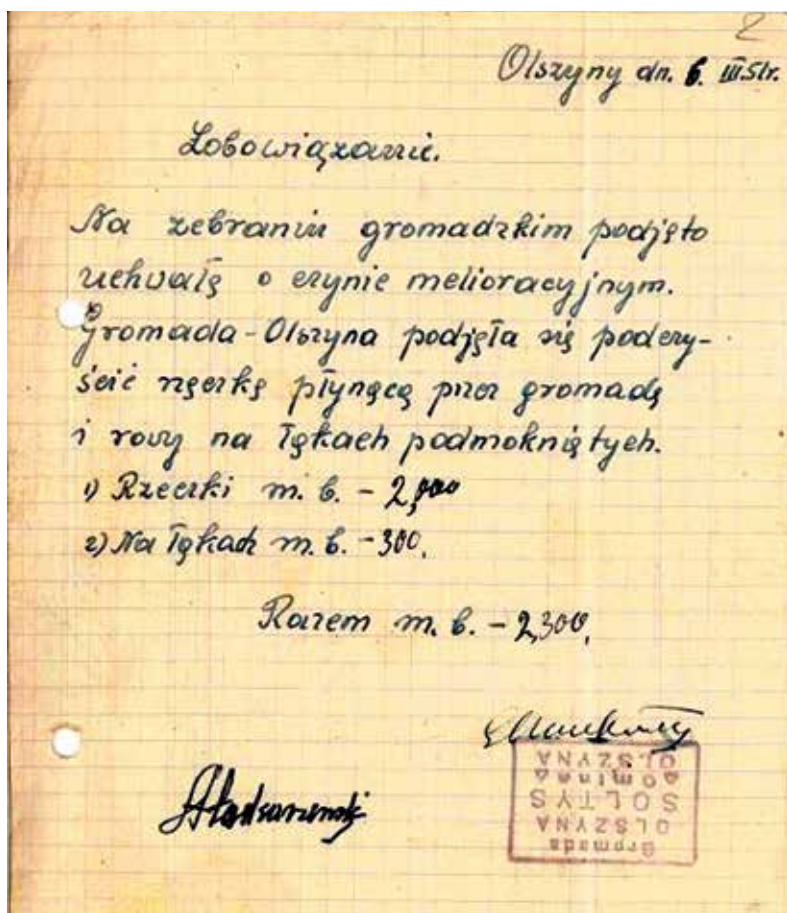 2
Olszyny dn. 6. III.51r.
Zobowiązanie.
Na zebraniu gromadzkim podjęto
uchwałę o czynie melioracyjnym.
Gromada-Olszyna podjęła się podczy-
ścić rzeczkę płynącą przez gromadę
i rowy na łąkach podmokniętych.
1) Rzeczki m. b. - 2,000
2) Na łąkach m. b. - 300.
Razem m. b. - 2,300.
Gromada
OLSZYNA
SOŁTYS
Gmina
OLSZYNA